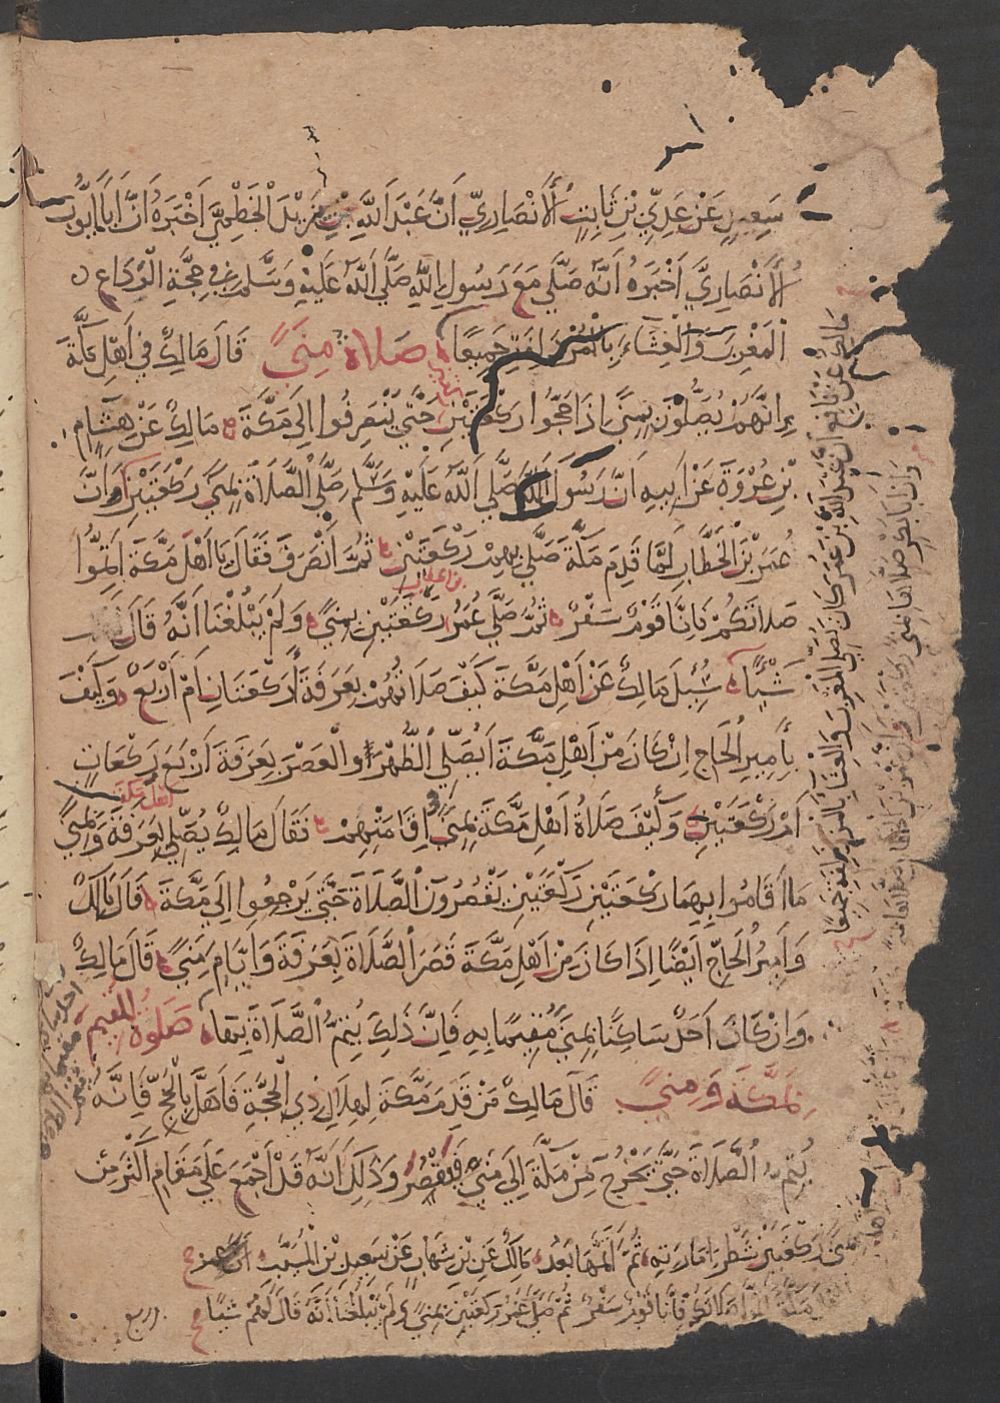 سَعِيدٍ عَنْ عَدِيِّ بْنِ ثَابِتٍ الْأَنْصَارِيِّ أَنَّ عَبْدَ اللَّهِ بْنَ يَزِيدَ الْخَطْمِيَّ أَخْبَرَهُ أَنَّ أَبَا أَيُّوبَ
الْأَنْصَارِيَّ أَخْبَرَهُ أَنَّهُ صَلَّى مَعَ رَسُولِ اللَّهِ صَلَّى اللَّهُ عَلَيْهِ وَسَلَّمَ فِي حِجَّةِ الْوَدَاعِ
الْمَغْرِبَ وَالْعِشَاءَ بِالْمُزْدَلِفَةِ جَمِيعًا صَلَاةُ مِنًى قَالَ مَالِكٌ فِي أَهْلِ مَكَّةَ
إِنَّهُمْ يُصَلُّونَ بِمِنًى إِذَا حَجُّوا رَكْعَتَيْنِ حَتَّى يَنْصَرِفُوا إِلَى مَكَّةَ مَالِكٌ عَنْ هِشَامِ
بْنِ عُرْوَةَ عَنْ أَبِيهِ أَنَّ رَسُولَ اللَّهِ صَلَّى اللَّهُ عَلَيْهِ وَسَلَّمَ صَلَّى الصَّلَاةَ بِمِنًى رَكْعَتَيْنِ وَأَنَّ
عُمَرَ بْنَ الْخَطَّابِ لَمَّا قَدِمَ مَكَّةَ صَلَّى بِهِمْ رَكْعَتَيْنِ ثُمَّ انْصَرَفَ فَقَالَ يَا أَهْلَ مَكَّةَ أَتِمُّوا
صَلَاتَكُمْ فَإِنَّا قَوْمٌ سَفْرٌ ثُمَّ صَلَّى عُمَرُ رَكْعَتَيْنِ بِمِنًى وَلَمْ يَبْلُغْنَا أَنَّهُ قَالَ
شَيْئًا سُئِلَ مَالِكٌ عَنْ أَهْلِ مَكَّةَ كَيْفَ صَلَاتُهُمْ بِعَرَفَةَ أَرَكْعَتَانِ أَمْ أَرْبَعٌ وَكَيْفَ
بِأَمِيرِ الْحَاجِ إِنْ كَانَ مِنْ أَهْلِ مَكَّةَ أَيُصَلِّي الظُّهْرَ وَالْعَصْرَ بِعَرَفَةَ أَرْبَعَ رَكْعَاتٍ
أَمْ رَكْعَتَيْنِ وَكَيْفَ صَلَاةُ أَهْلِ مَكَّةَ بِمِنًى فِي إِقَامَتِهِمْ فَقَالَ مَالِكٌ يُصَلِّي أهل مكة بِعَرَفَةَ وَبِمِنًى
مَا أَقَامُوا بِهِمَا رَكْعَتَيْنِ رَكْعَتَيْنِ يَقْصُرُونَ الصَّلَاةَ حَتَّى يَرْجِعُوا إِلَى مَكَّةَ قَالَ مَالِكٌ
وَأَمِيرُ الْحَاجِّ أَيْضًا إِذَا كَانَ مِنْ أَهْلِ مَكَّةَ قَصَرَ الصَّلَاةَ بِعَرَفَةَ وَأَيَّامِ مِنًى قَالَ مَالِكٌ
وَإِنْ كَانَ أَحَدٌ سَاكِنًا بِمِنًى مُقِيمًا بِهِ فَإِنَّ ذَلِكَ يُتِمُّ الصَّلَاةَ بِهَا صَلَوةُ الْمُقِيمِ
بِمَكَّةَ وَمِنًى قَالَ مَالِكٌ مَنْ قَدِمَ مَكَّةَ لِهِلَالِ ذِي الْحِجَّةِ فَأَهَلَّ بِالْحَجِّ فَإِنَّهُ
يُتِمُّ الصَّلَاةَ حَتَّى يَخْرُجَ مِنْ مَكَّةَ إِلَى مِنًى فَيَقْصُرُ وَذَلِكَ أَنَّهُ قَدْ أَجْمَعَ عَلَى مَقَامٍ أَكْثَرَ مِنْ
رَكْعَتَيْنِ شَطْرَ إِمَارَتِهِ ثُمَّ أَتَمَّهَا بَعْدُ مَالِكٌ عَنِ ابْنِ شِهَابٍ عَنْ سَعِيدِ بْنِ الْمُسَيَّبِ أَنَّ
صَلَاتَكُمْ فَإِنَّا قَوْمٌ سَفْرٌ ثُمَّ صَلَّى عُمَرُ رَكْعَتَيْنِ بِمِنًى وَلَمْ يَبْلُغْنَا أَنَّهُ قَالَ لَهُمْ شَيْئًا
مَالِكٌ عَنْ نَافِعٍ أَنَّ عَبْدَ اللَّهِ بْنَ عُمَرَ كَانَ يُصَلِّي الْمَغْرِبَ وَالْعِشَاءَ بِالْمُزْدَلِفَةِ جَمِيعًا
وَأَنَّ أَبَا بَكْرٍ صَلَّاهَا بِمِنًى رَكْعَتَيْنِ وَأَنَّ عُمَرَ بْنَ الْخَطَّابِ صَلَّاهَا بِمِنًى